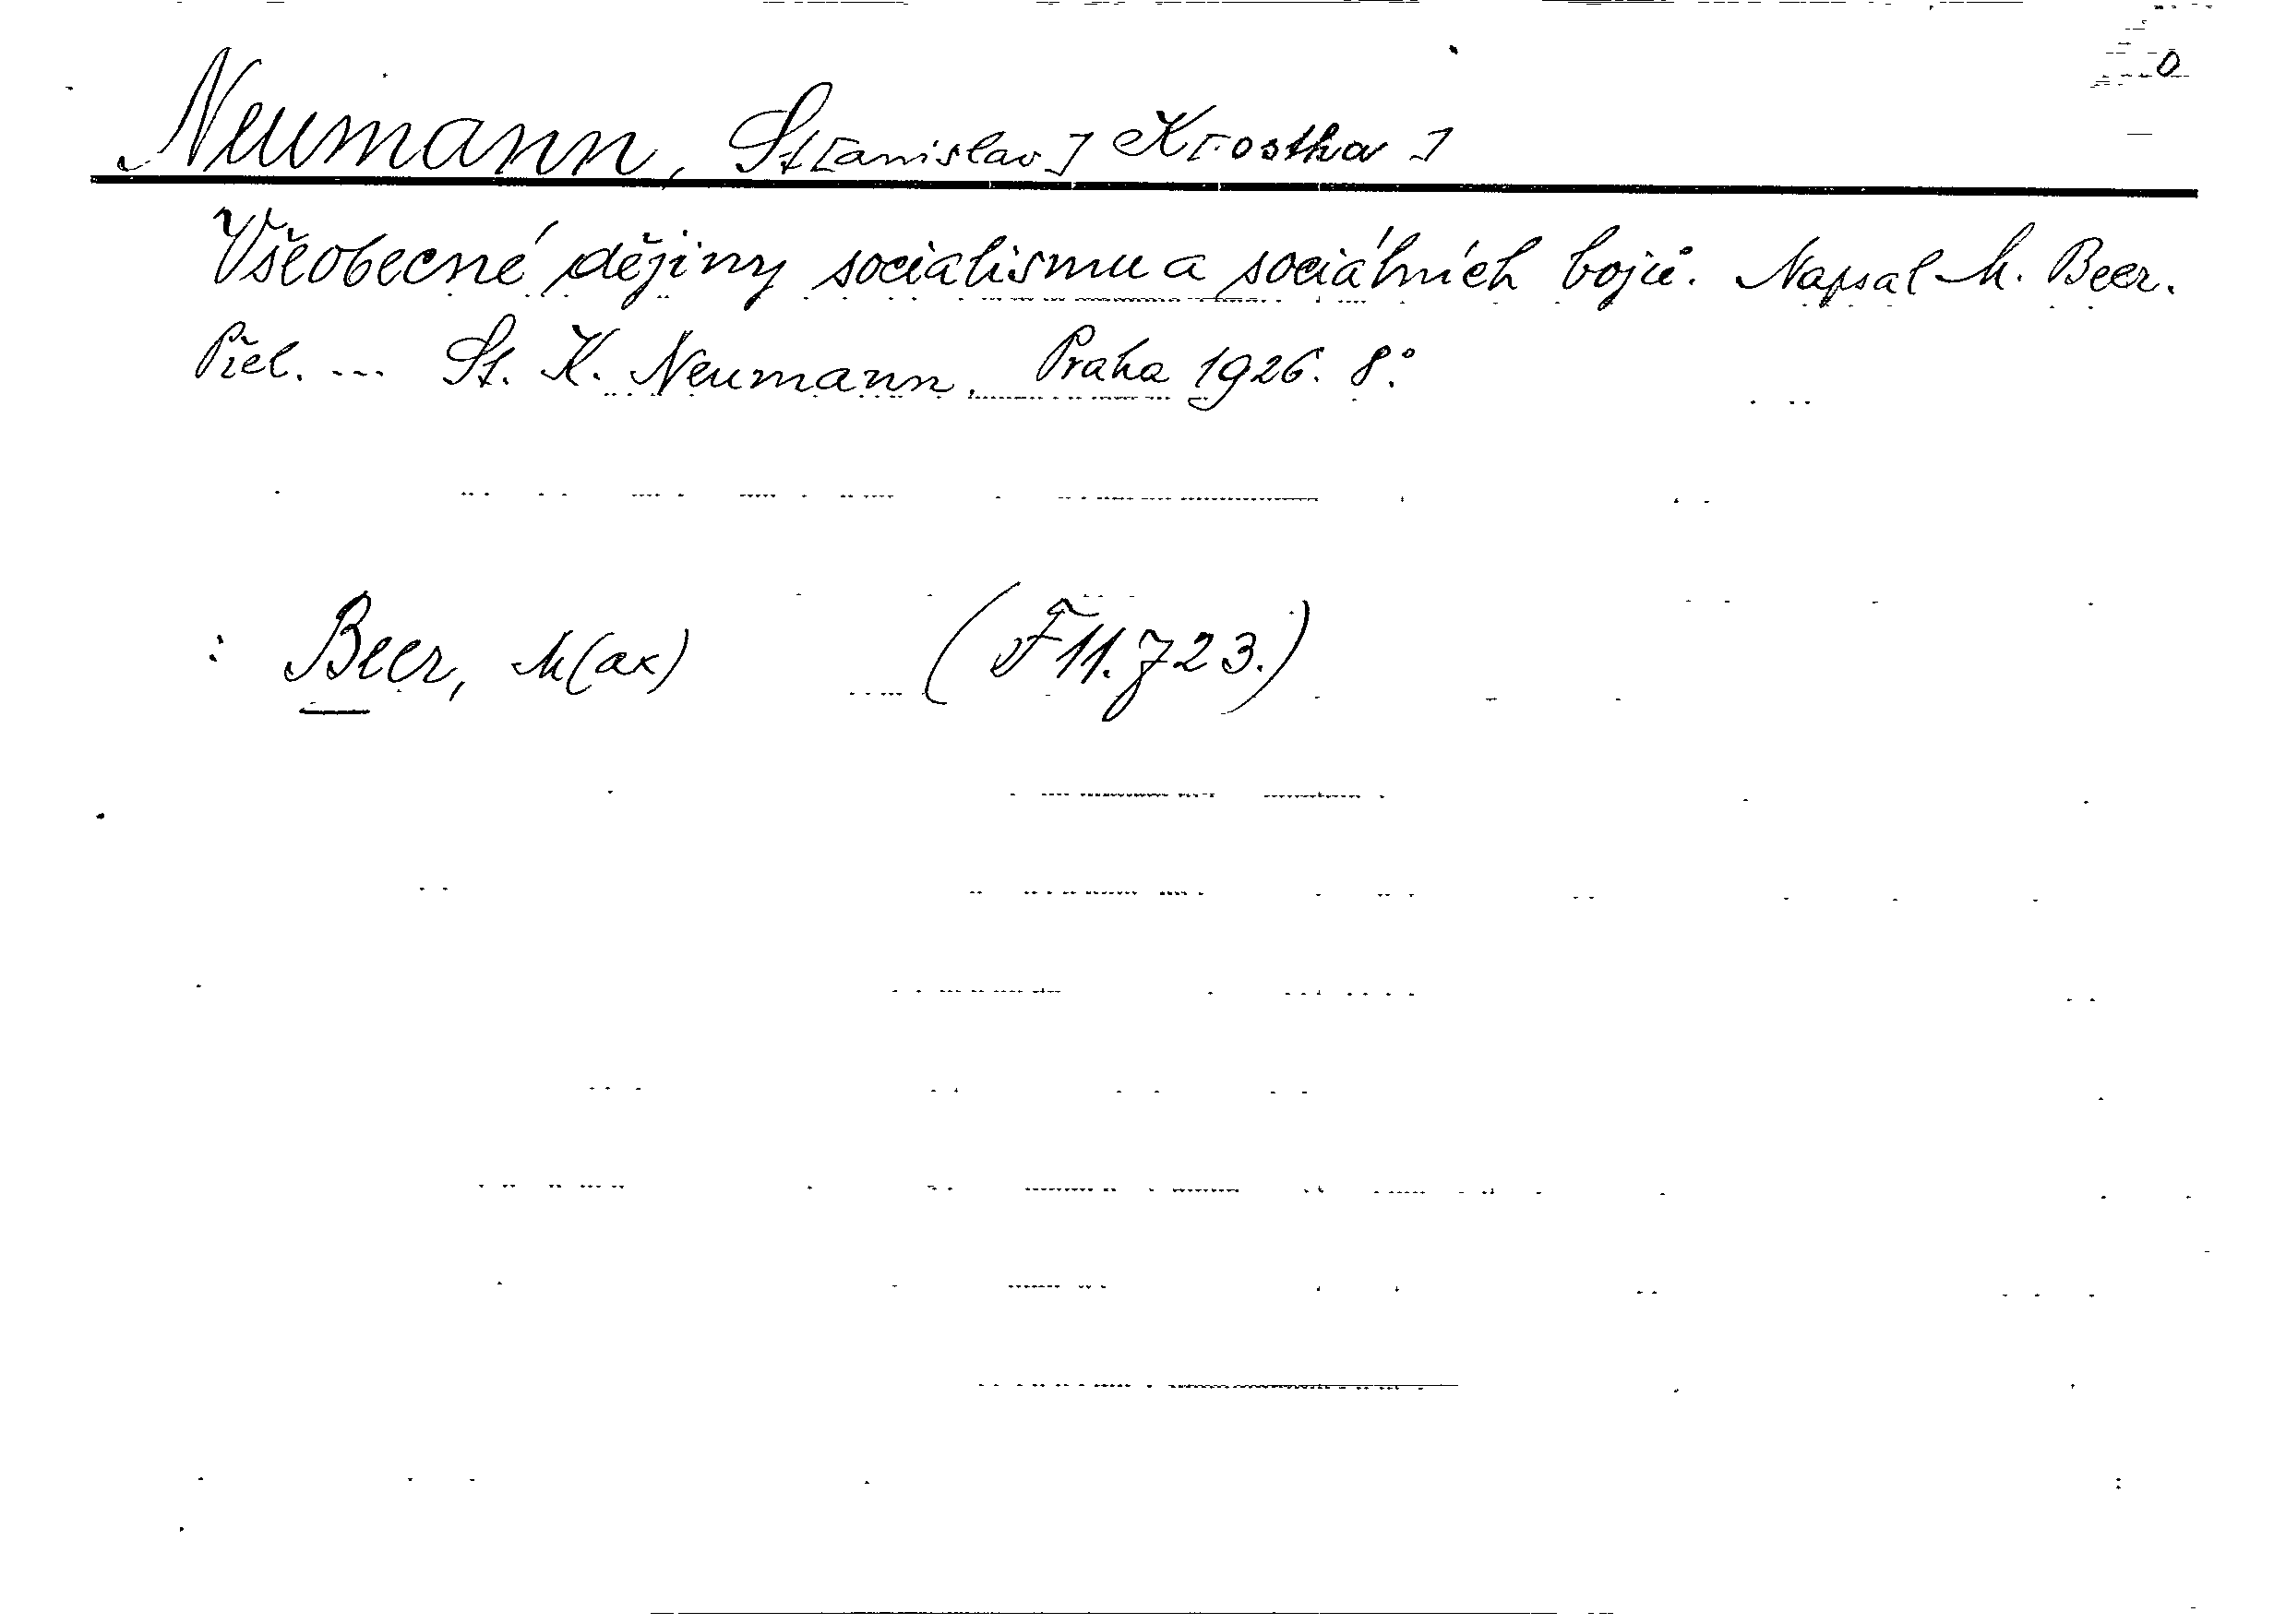 0
Neumann, St[anislav] K[ostka]
Všeobecné dějiny socialismu a sociálních bojů. Napsal M. Beer.
Přel. ... St. K. Neumann. Praha 1926. 8°.
: Beer, M(ax) (F11.723.)